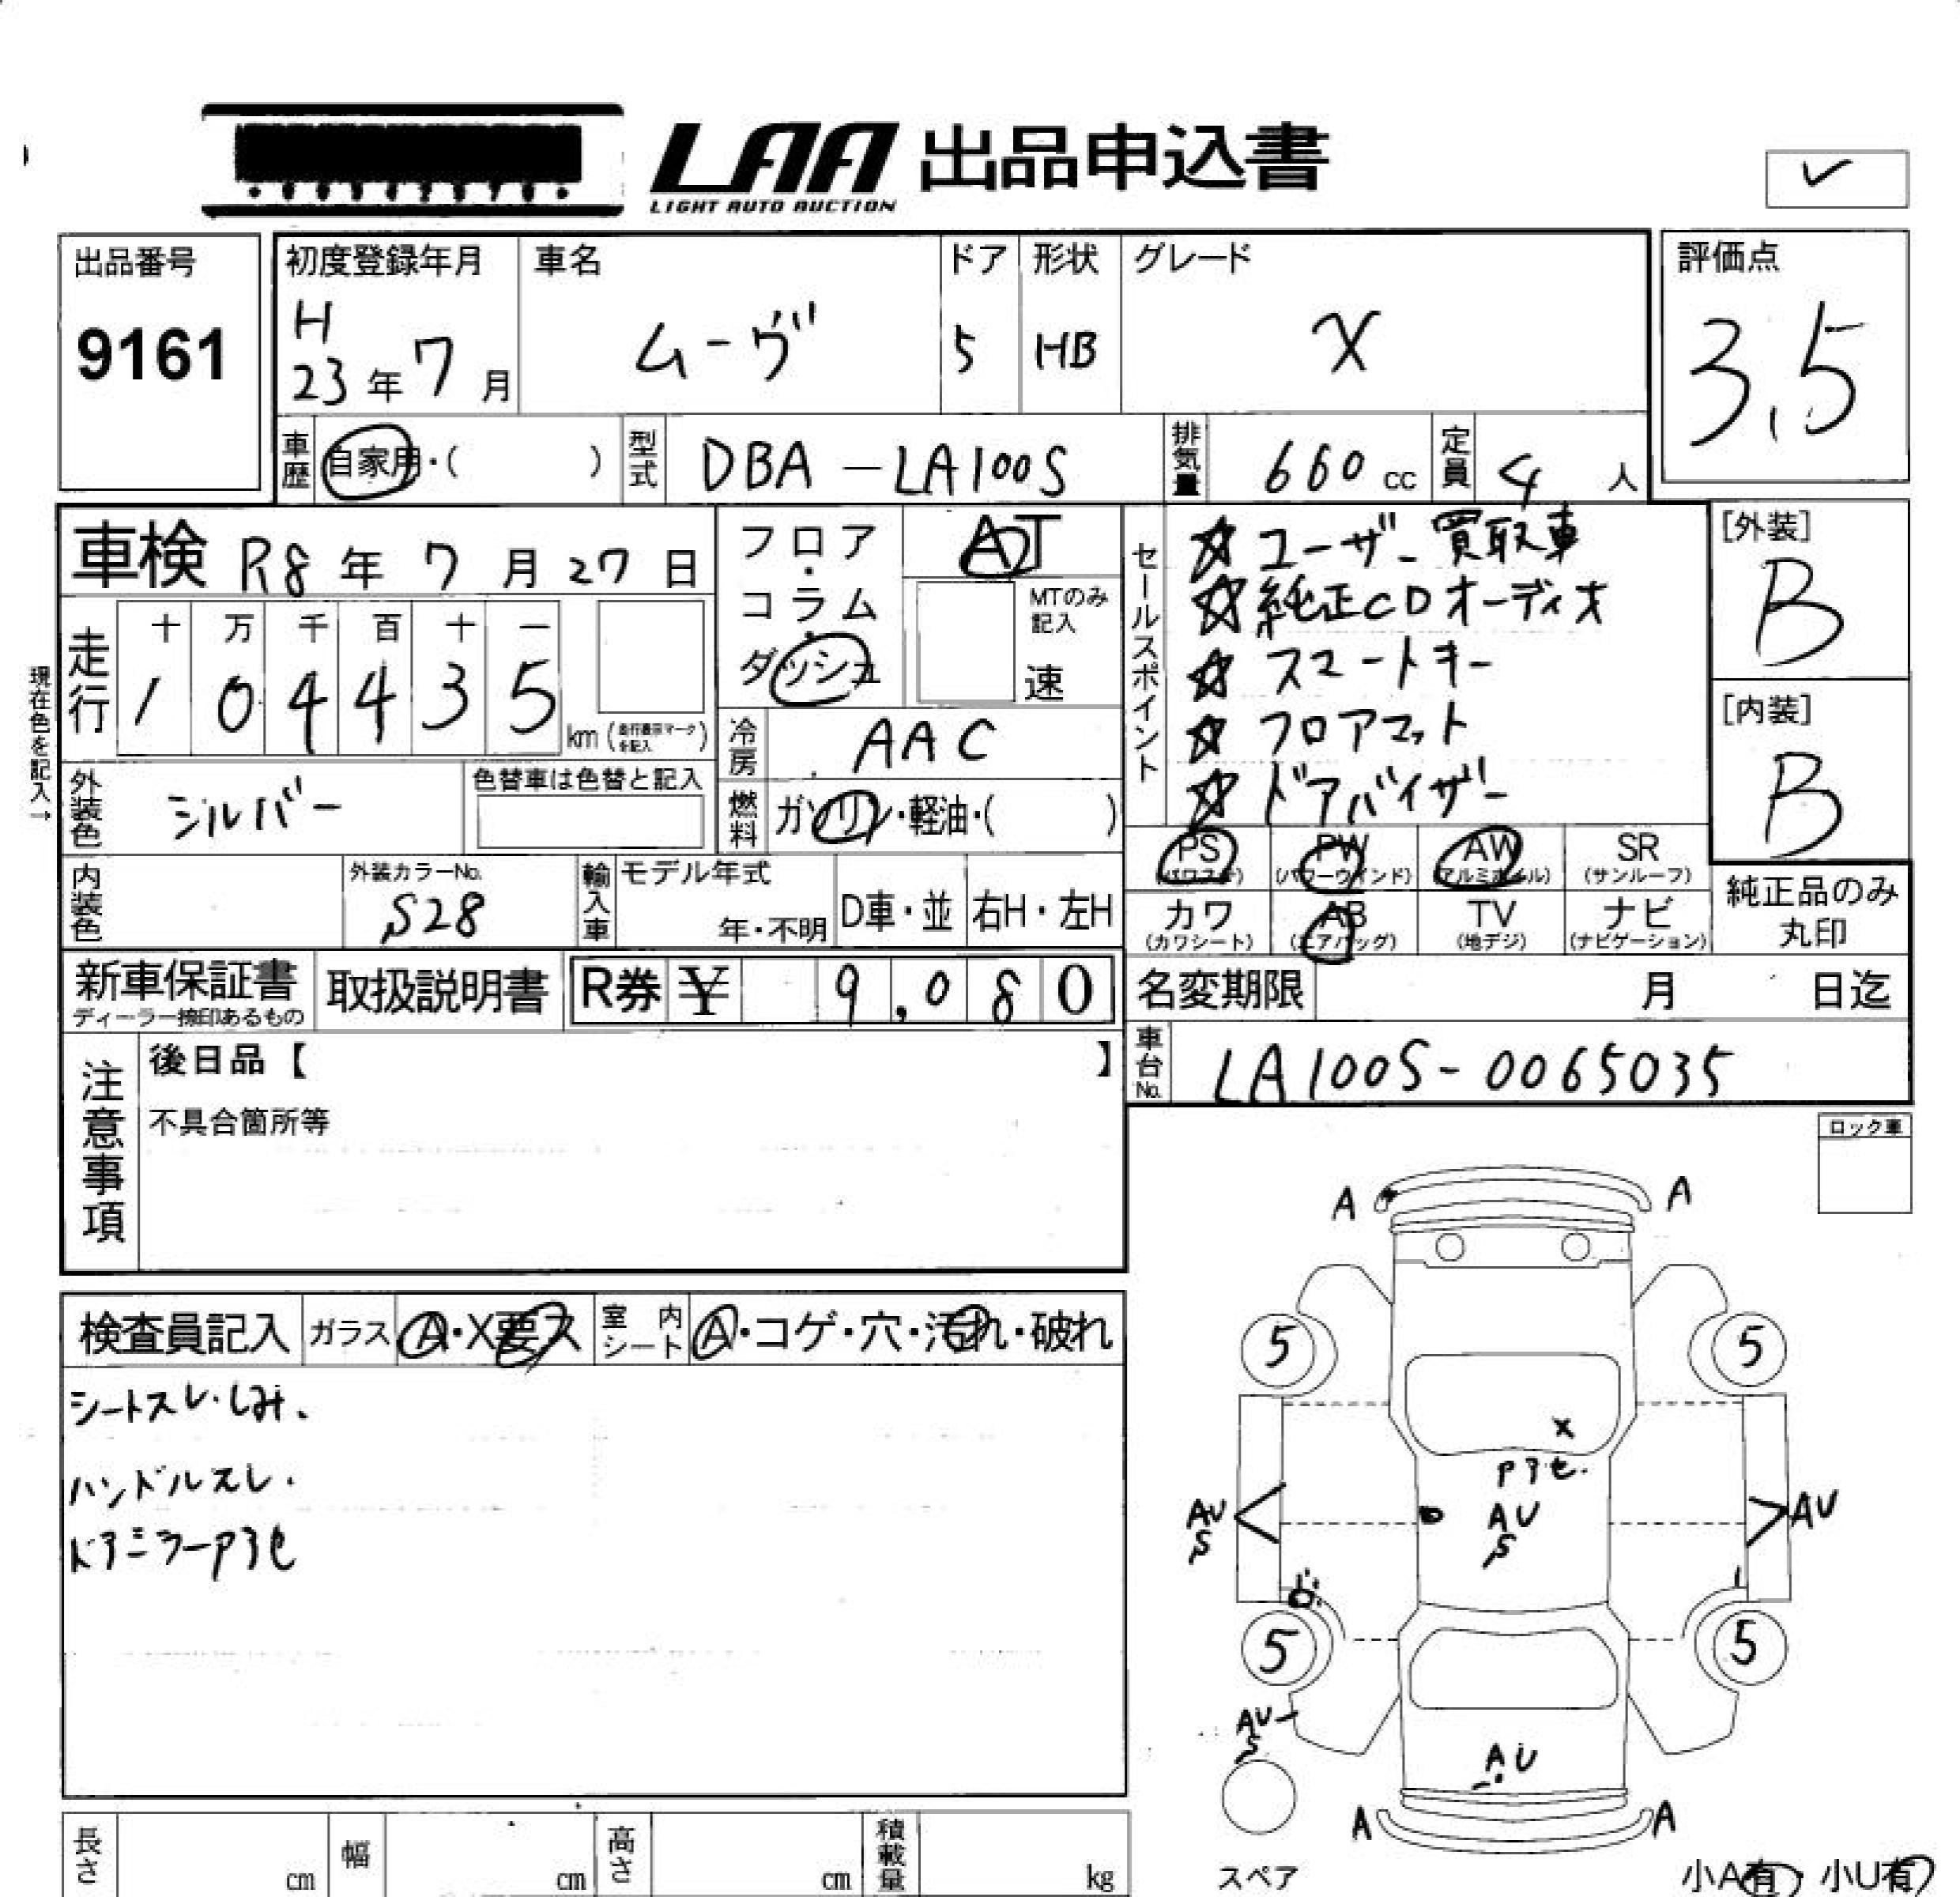 LAA 出品申込書
LIGHT AUTO AUCTION
✓
出品番号
9161
初度登録年月
H
23年7月
車名
ムーヴ
ドア
5
形状
HB
グレード
X
評価点
3.5
車歴 自家用・( )
型式 DBA-LA100S
排気量 660 cc
定員 4 人
車検 R8年7月27日
フロア・コラム・ダッシュ
AT
MTのみ記入
速
セールスポイント
☆ユーザー買取車
☆純正CDオーディオ
☆スマートキー
☆フロアマット
☆ドアバイザー
[外装]
B
[内装]
B
現在色を記入→
走行
十 万 千 百 十 一
1 0 4 4 3 5
km (走行表示マークを記入)
冷房 AAC
外装色 シルバー
色替車は色替と記入
燃料 ガソリン・軽油・( )
PS (パワステ)
PW (パワーウインド)
AW (アルミホイル)
SR (サンルーフ)
カワ (カワシート)
AB (エアバッグ)
TV (地デジ)
ナビ (ナビゲーション)
純正品のみ丸印
内装色
外装カラーNo.
S28
輸入車
モデル年式
年・不明
D車・並
右H・左H
新車保証書
ディーラー捺印あるもの
取扱説明書
R券 ¥ 9,080
名変期限 月 日迄
車台No. LA100S-0065035
注意事項
後日品【 】
不具合箇所等
ロック車
検査員記入
ガラス A・X要ス
室内シート A・コゲ・穴・汚れ・破れ
シートスレ・しみ.
ハンドルスレ.
ドアミラーPアセ
A A
5 5
X
Pアセ.
AU
S
AU
S
AU
5 5
AU
S
AU
A A
スペア
小A有・小U有
長さ cm
幅 cm
高さ cm
積載量 kg